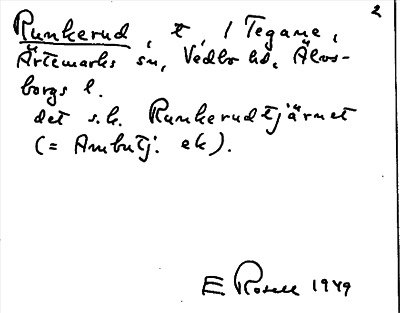 2
Runkerud, t, i Tegane,
Ärtemarks sn, Vedbo hd, Älvs-
borgs l.
det s.k. Runkerudtjärnet
(= Ambutj. ek).
E Rosell 1949